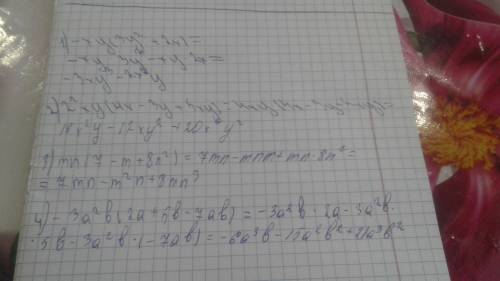 1) -xy(3y² + 2x) =
-xy · 3y² - xy · 2x =
-3xy³ - 2x²y
xy(4x - 3y + 5xy) - 4xy(4x - 3y + 5xy) =
16x²y - 12xy² + 20x²y²
3) mn(7 - m + 8n²) = 7mn - mnm + mn · 8n² =
= 7mn - m²n + 8mn³
4) -3a²b(2a + 5b - 7ab) = -3a²b · 2a - 3a²b ·
· 5b - 3a²b · (-7ab) = -6a³b - 15a²b² + 21a³b²